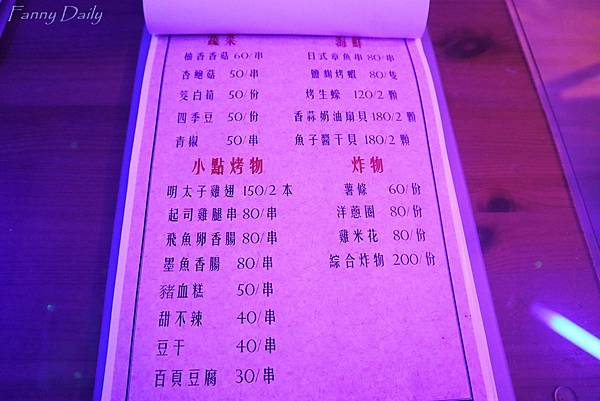 Fanny Daily
蔬菜
柚香香菇 60/串
杏鮑菇 50/串
筊白筍 50/份
四季豆 50/份
青椒 50/串
海鮮
日式章魚串 80/串
鹽焗烤蝦 80/隻
烤生蠔 120/2 顆
香蒜奶油扇貝 180/2 顆
魚子醬干貝 180/2 顆
小點烤物
明太子雞翅 150/2 本
起司雞腿串 80/串
飛魚卵香腸 80/串
墨魚香腸 80/串
豬血糕 50/串
甜不辣 40/串
豆干 40/串
百頁豆腐 30/串
炸物
薯條 60/份
洋蔥圈 80/份
雞米花 80/份
綜合炸物 200/份